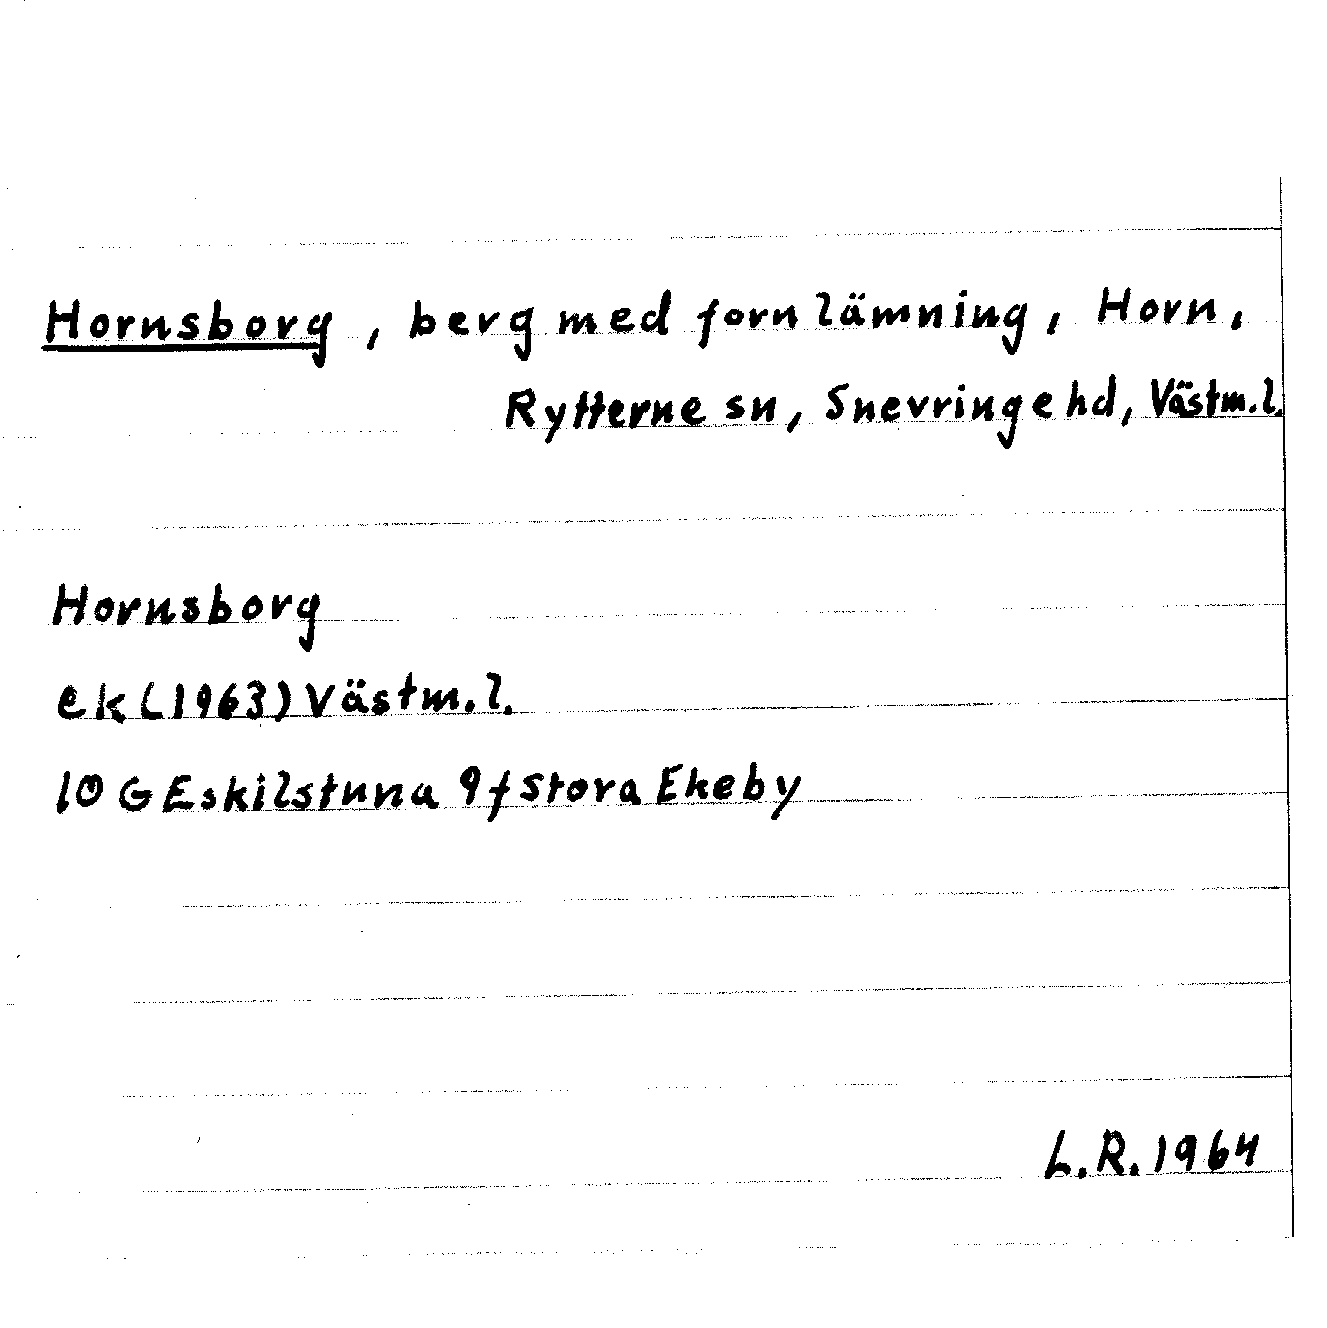 Hornsborg, berg med fornlämning, Horn,
Rytterne sn, Snevringe hd, Västm.l.
Hornsborg
ek (1963) Västm.l.
10 G Eskilstuna 9 f Stora Ekeby
L.R. 1964